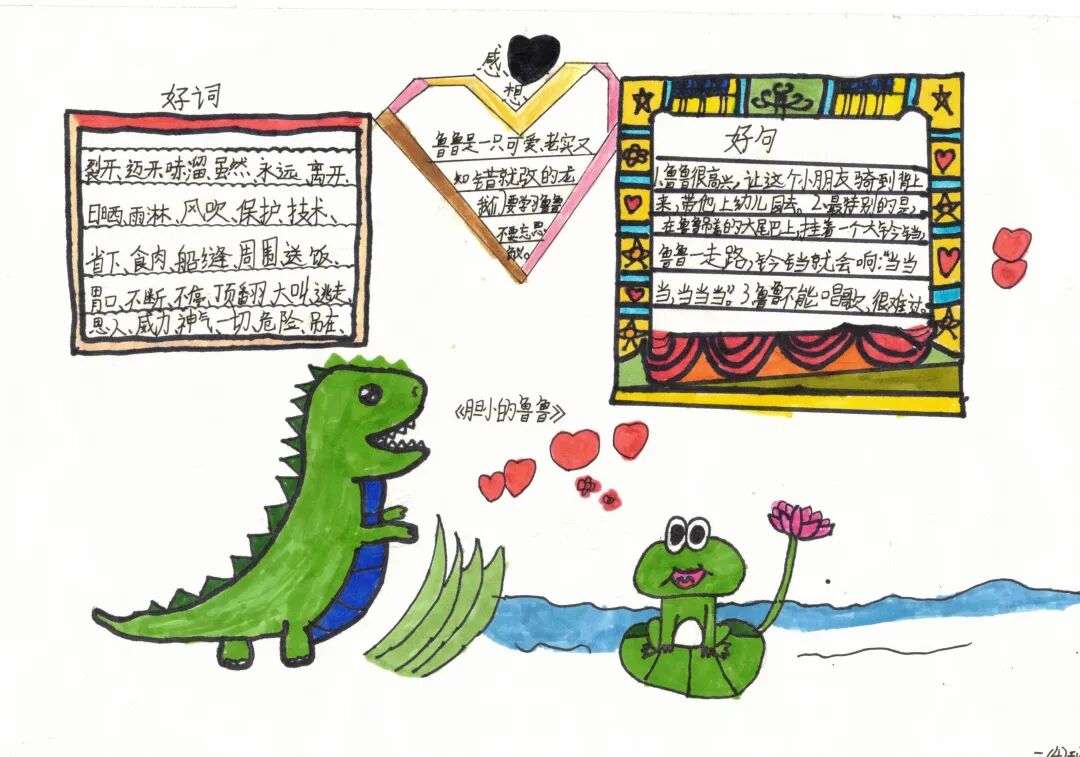 好词
裂开、迈开、哧溜、虽然、永远、离开、
日晒、雨淋、风吹、保护、技术、
省下、食肉、船缝、周围、送饭、
胃口、不断、不停、顶翻、大叫、逃走、
恩人、威力、神气、一切、危险、吊在、
感想
鲁鲁是一只可爱、老实又
知错就改的龙
我们要学习鲁鲁
不要忘恩
负义。
好句
1.鲁鲁很高兴，让这个小朋友骑到背上
来，带他上幼儿园去。2.最特别的是，
在鲁鲁的大尾巴上，挂着一个大铃铛，
鲁鲁一走路，铃铛就会响："当当
当，当当当。"3鲁鲁不能唱歌、很难过。
《胆小的鲁鲁》